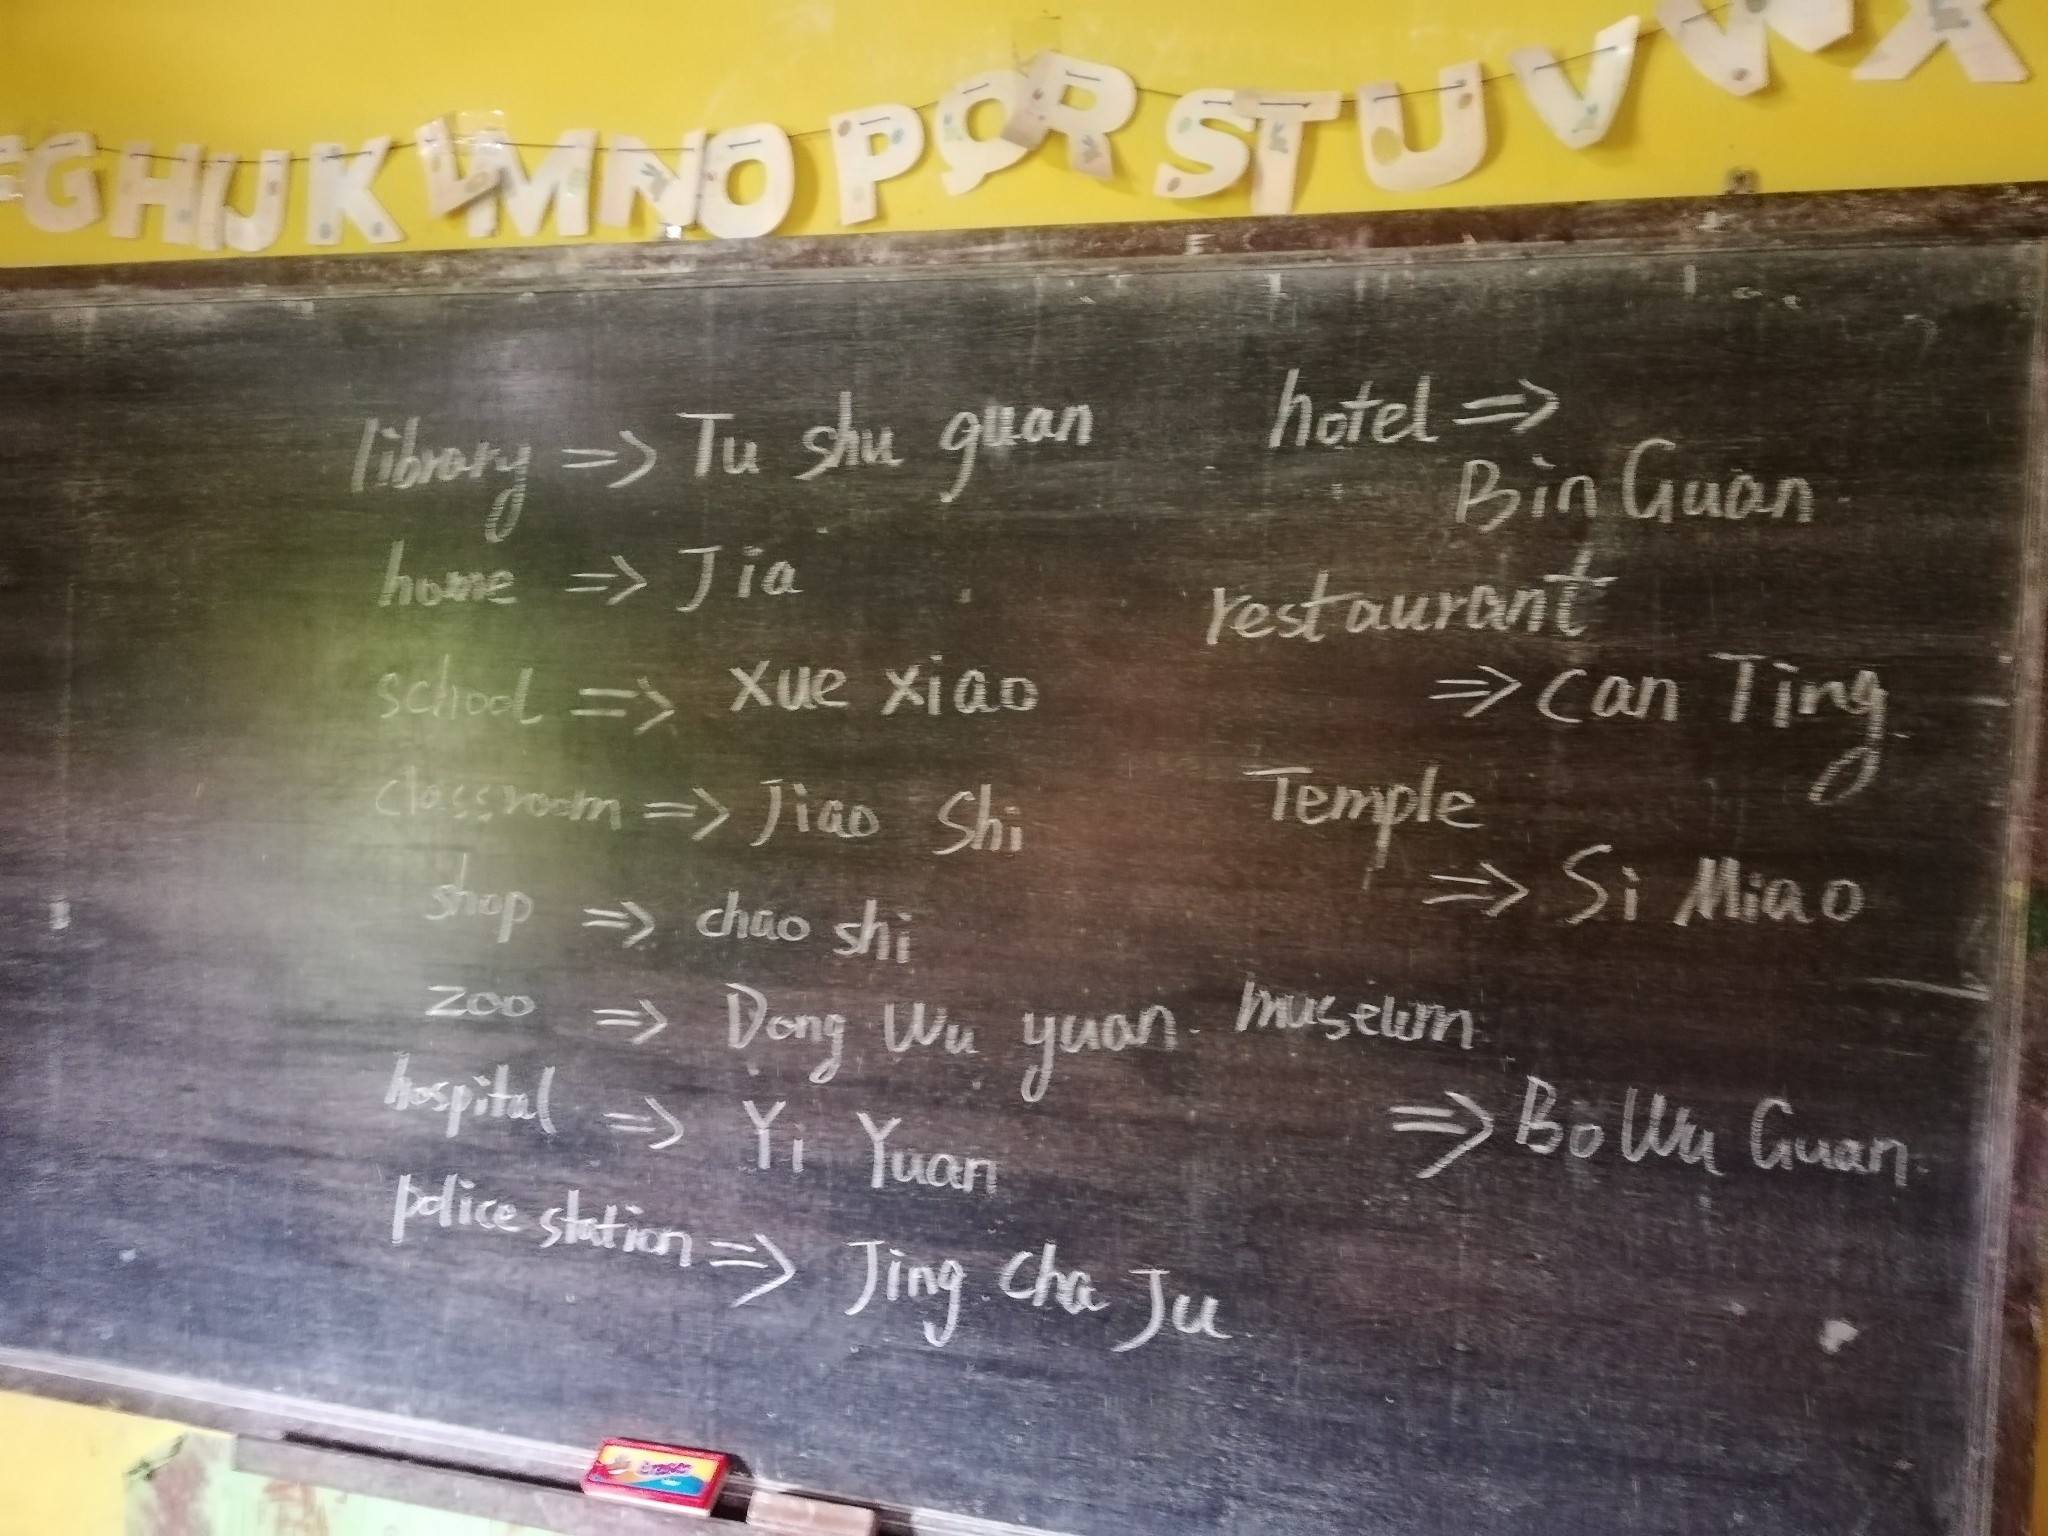 G H I J K L M N O P Q R S T U V W X
library => Tu shu guan
home => Jia
school => xue xiao
classroom => Jiao Shi
shop => chao shi
zoo => Dong Wu yuan.
hospital => Yi Yuan
police station => Jing Cha Ju
hotel =>
Bin Guan.
restaurant
=> Can Ting
Temple
=> Si Miao
museum
=> Bo Wu Guan.